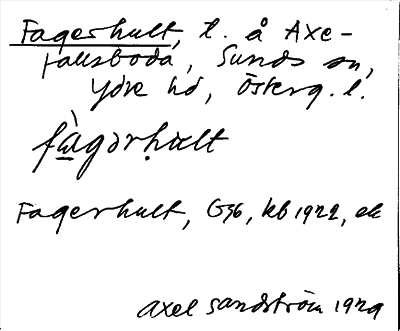 Fagerhult, t. å Axe-
fallsboda, Sunds sn,
Ydre hd, Österg. l.
fàgərhult
Fagerhult, Gsb, kb 1922, ek
Axel Sandström 1929